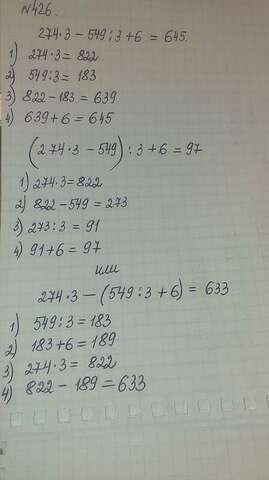 №426.
274·3 − 549:3 + 6 = 645.
1) 274·3 = 822
2) 549:3 = 183
3) 822 − 183 = 639
4) 639 + 6 = 645
(274·3 − 549) : 3 + 6 = 97
1) 274·3 = 822
2) 822 − 549 = 273
3) 273:3 = 91
4) 91 + 6 = 97
или
274·3 − (549:3 + 6) = 633
1) 549:3 = 183
2) 183 + 6 = 189
3) 274·3 = 822
4) 822 − 189 = 633